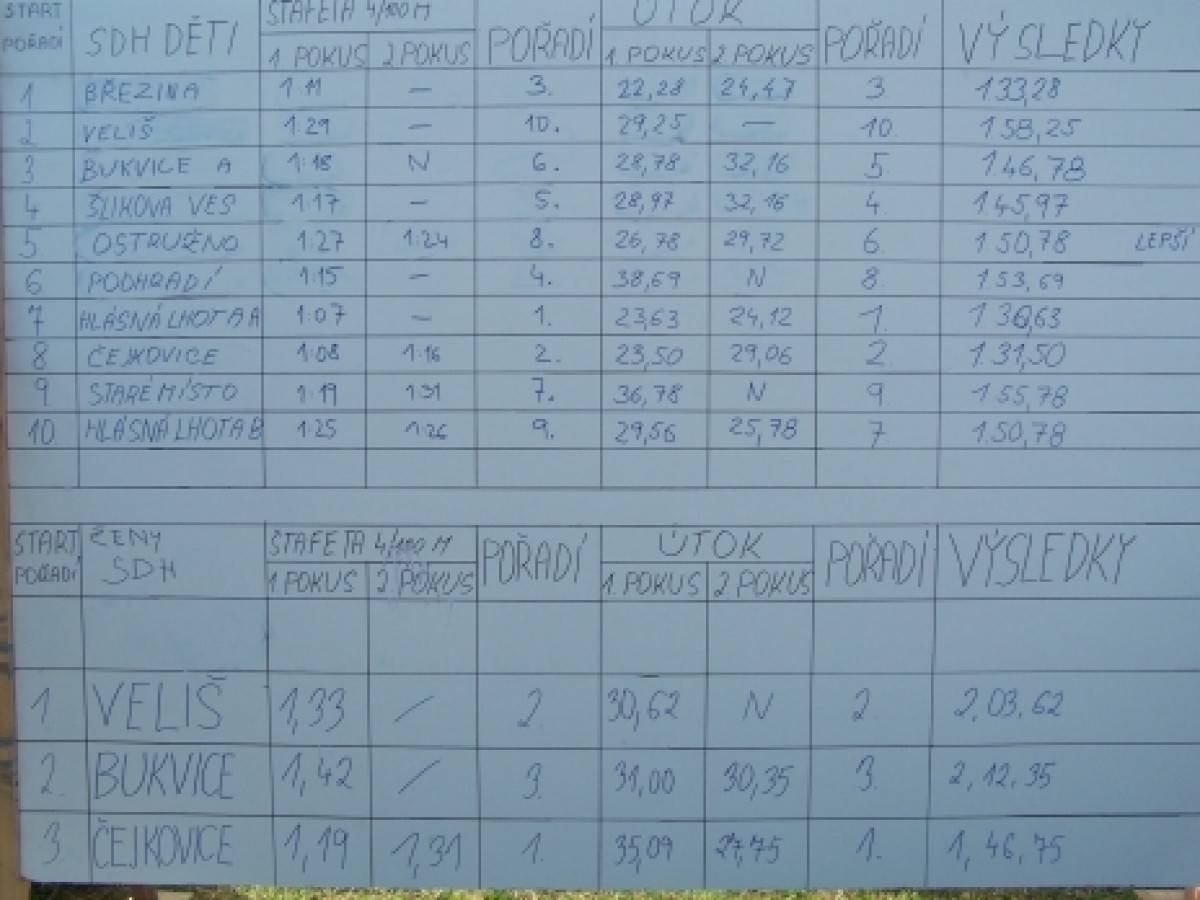 START POŘADÍ SDH DĚTI ŠTAFETA 4/100 M 1 POKUS 2 POKUS POŘADÍ ÚTOK 1. POKUS 2 POKUS POŘADÍ VÝSLEDKY
1 BŘEZINA 1:11 — 3. 22,28 24,47 3 1.33,28
2 VELIŠ 1:29 — 10. 29,25 — 10. 1 58,25
3 BUKVICE A 1:18 N 6. 28,78 32,16 5 1.46,78
4 ŠLIKOVA VES 1:17 — 5. 28,97 32,16 4. 1.45,97
5 OSTRUŽNO 1:27 1:24 8. 26,78 29,72 6 1.50,78 LEPŠÍ
6 PODHRADÍ 1:15 — 4. 38,69 N 8. 1 53,69
7 HLÁSNÁ LHOTA A 1:07 — 1. 23,63 24,12 1. 1 30,63
8 ČEJKOVICE 1:08 1:16 2. 23,50 29,06 2 1.31,50
9 STARÉ MÍSTO 1:19 1:31 7. 36,78 N 9. 1 55,78
10. HLÁSNÁ LHOTA B 1:25 1:26 9. 29,56 25,78 7 1.50,78
START POŘADÍ ŽENY SDH ŠTAFETA 4/100 M 1 POKUS 2. POKUS POŘADÍ ÚTOK 1. POKUS 2. POKUS POŘADÍ VÝSLEDKY
1 VELIŠ 1,33 / 2. 30,62 N 2. 2,03.62
2. BUKVICE 1,42 / 3. 31,00 30,35 3. 2,12.35
3. ČEJKOVICE 1,19 1,31 1. 35,09 27,75 1. 1,46.75